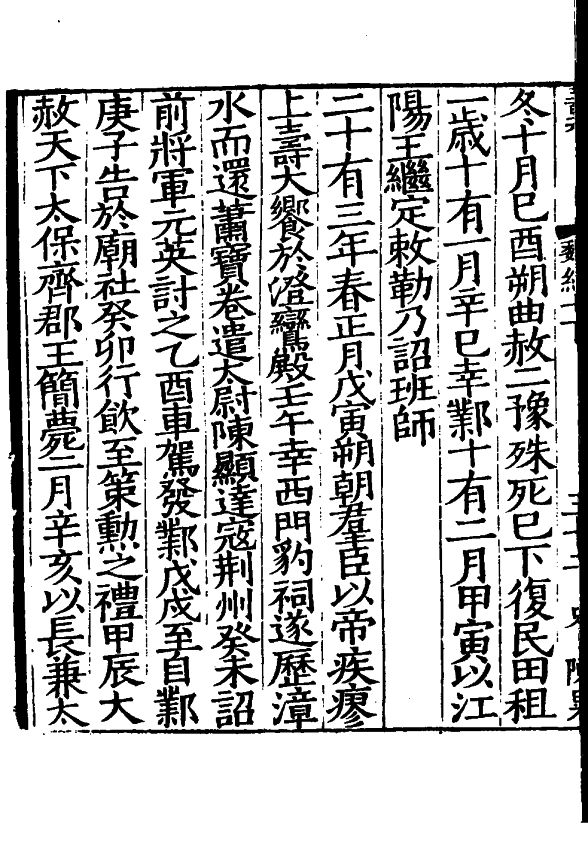 冬十月己酉朔曲赦二豫殊死已下復民田租
一歲十有一月辛巳幸鄴十有二月甲寅以江
陽王繼定敕勒乃詔班師
二十有三年春正月戊寅朔朝羣臣以帝疾瘳
上壽大饗於澄鸞殿壬午幸西門豹祠遂歷漳
水而還蕭寶卷遣太尉陳顯達寇荆州癸未詔
前將軍元英討之乙酉車駕發鄴戊戌至自鄴
庚子告於廟社癸卯行飲至策勳之禮甲辰大
赦天下太保齊郡王簡薨二月辛亥以長兼太